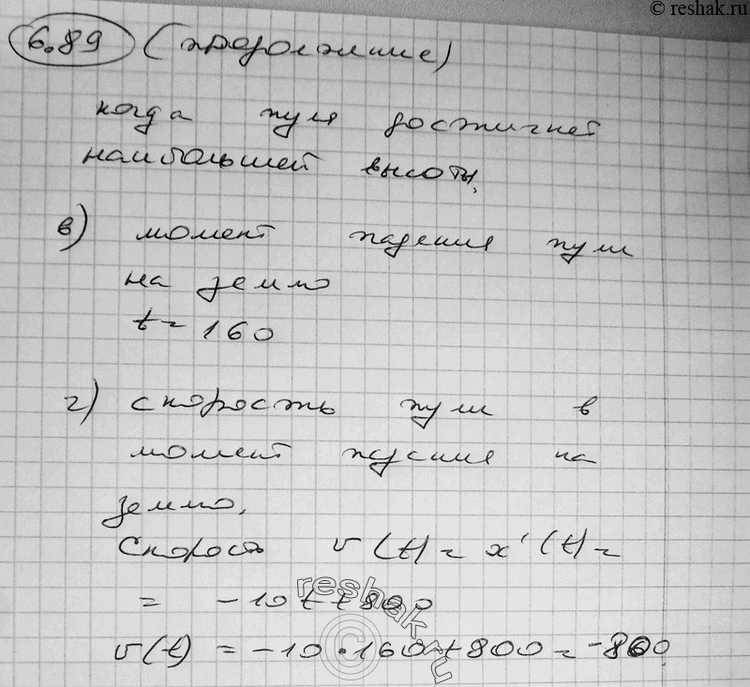 © reshak.ru
6.89 (продолжение)
когда пуля достигнет
наибольшей высоты.
в) момент падения пули
на землю
t = 160
г) скорость пули в
момент падения на
землю.
Скорость v(t) = x'(t) =
= -10t + 800
v(t) = -10·160 + 800 = -800
reshak.ru
©